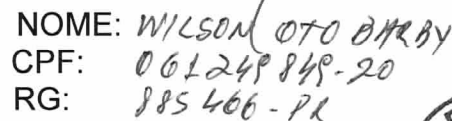 NOME: WILSON OTO BARBY
CPF: 061249849-20
RG: 885466-PR